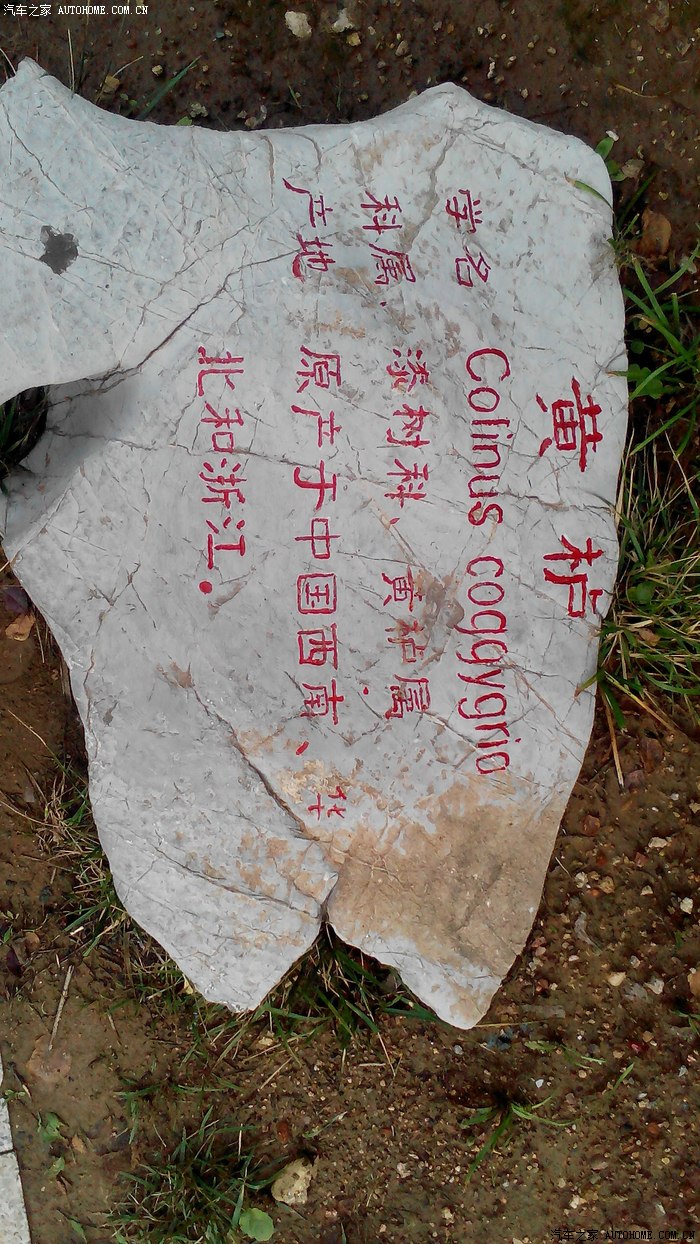 汽车之家 AUTOHOME.COM.CN
黄栌
学名 Colinus coggygria
科属、漆树科、黄栌属
产地 原产于中国西南、华
北和浙江.
汽车之家 AUTOHOME.COM.CN